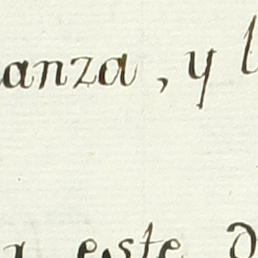 anza, y
este